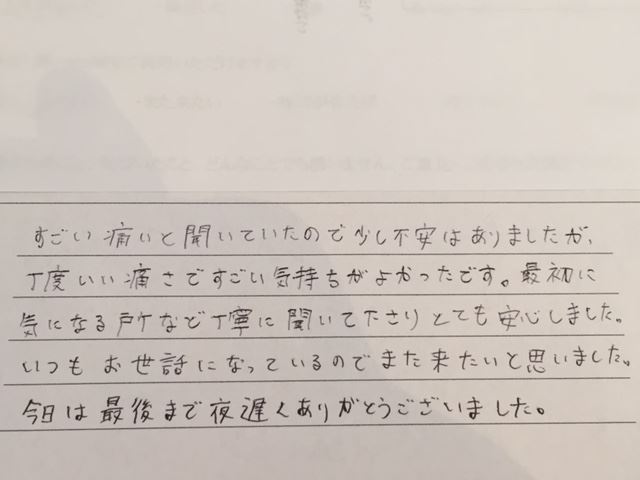 すごい痛いと聞いていたので少し不安はありましたが、
丁度いい痛さですごい気持ちがよかったです。最初に
気になる所など丁寧に聞いて下さりとても安心しました。
いつもお世話になっているのでまた来たいと思いました。
今日は最後まで夜遅くありがとうございました。